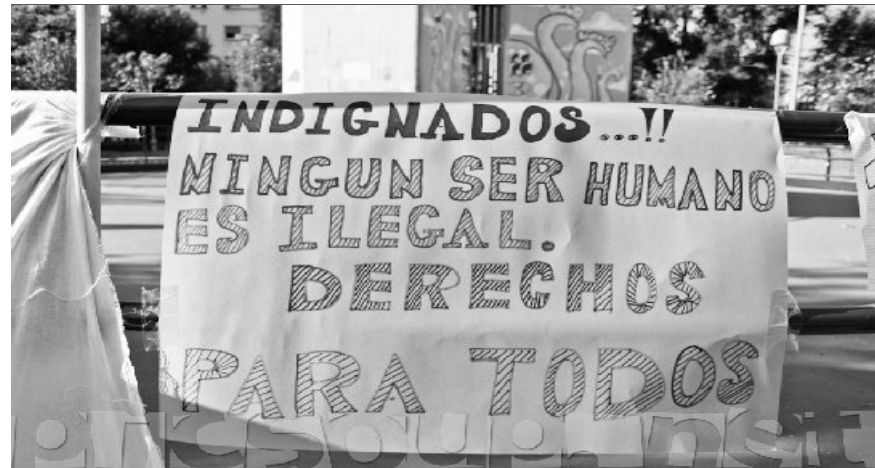 INDIGNADOS...!!
NINGUN SER HUMANO
ES ILEGAL.
DERECHOS
PARA TODOS